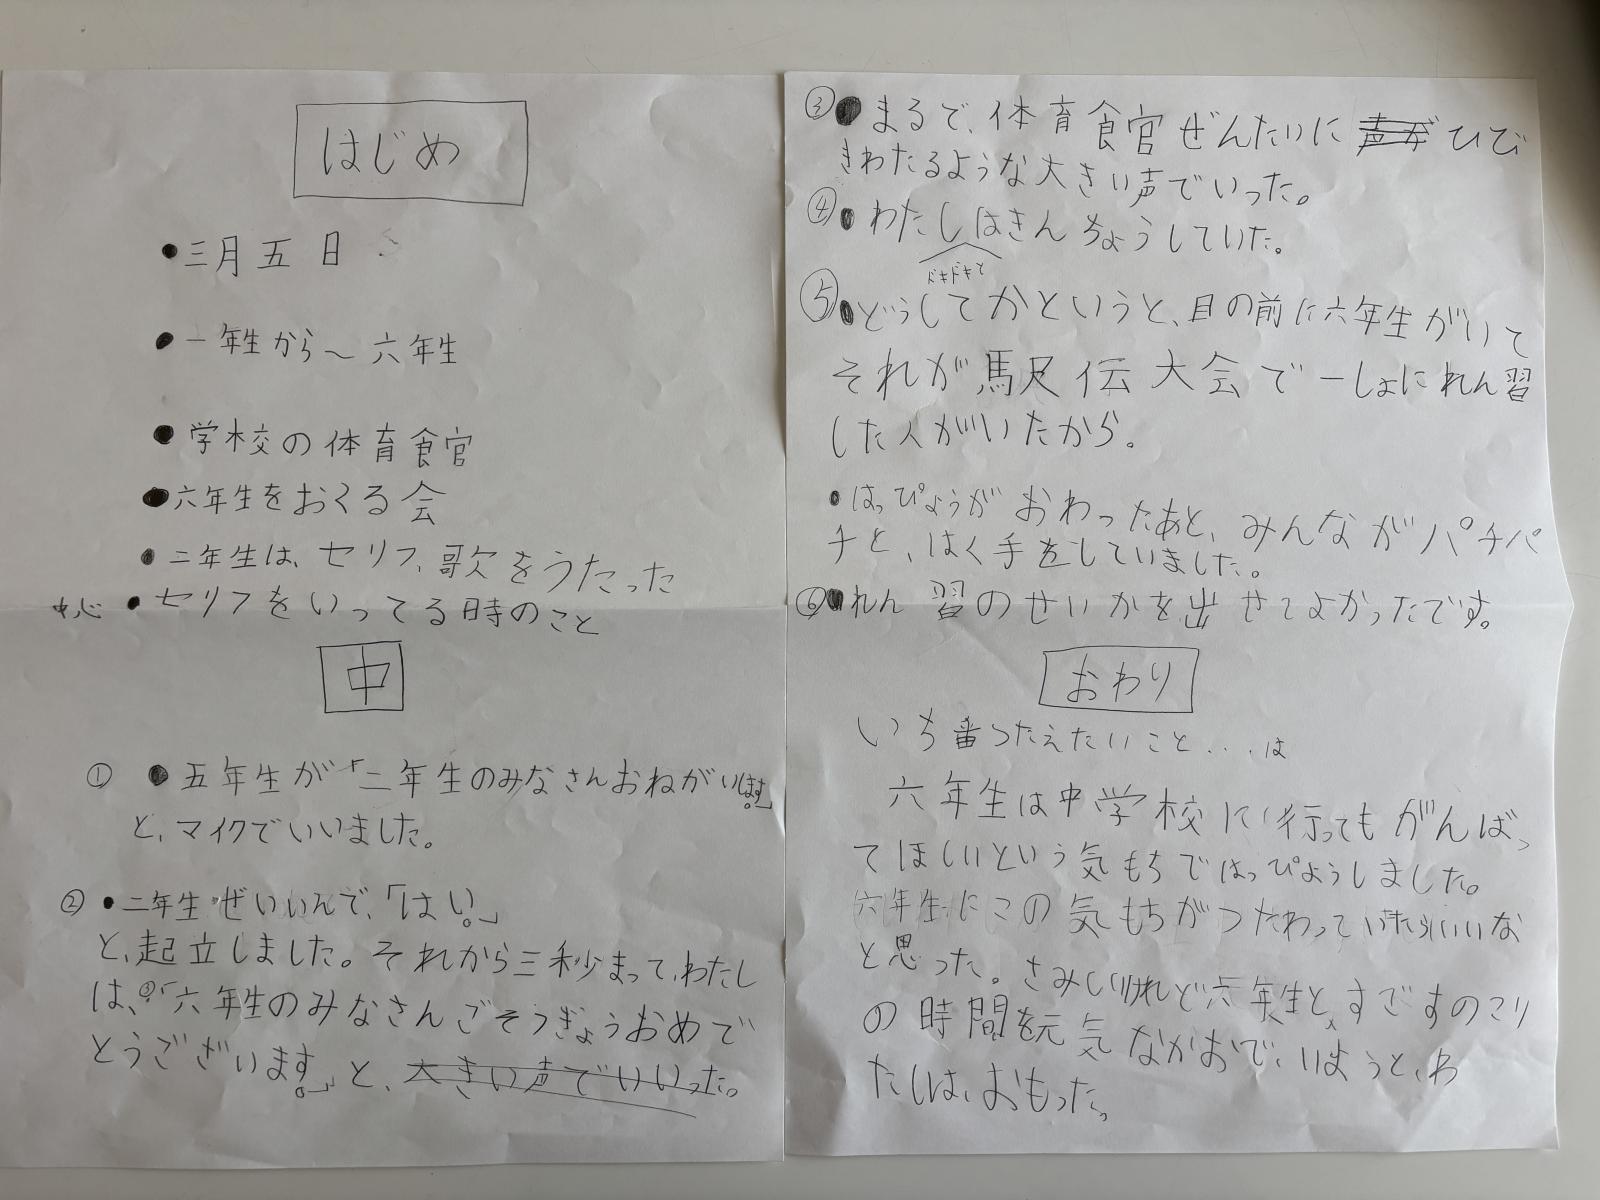 はじめ
●三月五日
●一年生から～六年生
●学校の体育館
●六年生をおくる会
●二年生は、セリフ、歌をうたった
中心 ●セリフをいってる時のこと
中
① ●五年生が「二年生のみなさんおねがいします。」
と、マイクでいいました。
② ●二年生ぜいいんで、「はい。」
と、起立しました。それから三秒まって、わたし
は、③「六年生のみなさんごそつぎょうおめで
とうございます。」と、大きい声でいいった。
③ ●まるで、体育館ぜんたいに声がひび
きわたるような大きい声でいった。
④ ●わたしはきんちょうしていた。
ドキドキと
⑤ ●どうしてかというと、目の前に六年生がいて
それが駅伝大会で一しょにれん習
した人がいたから。
●はっぴょうがおわったあと、みんながパチパ
チと、はく手をしていました。
⑥ ●れん習のせいかを出せてよかったです。
おわり
いち番つたえたいこと...は
六年生は中学校に行ってもがんばっ
てほしいという気もちではっぴょうしました。
六年生にこの気もちがつたわっていたらいいな
と思った。さみしいけれど六年生と、すごすのこり
の時間を元気なかおで、いようと、わ
たしは、おもった。